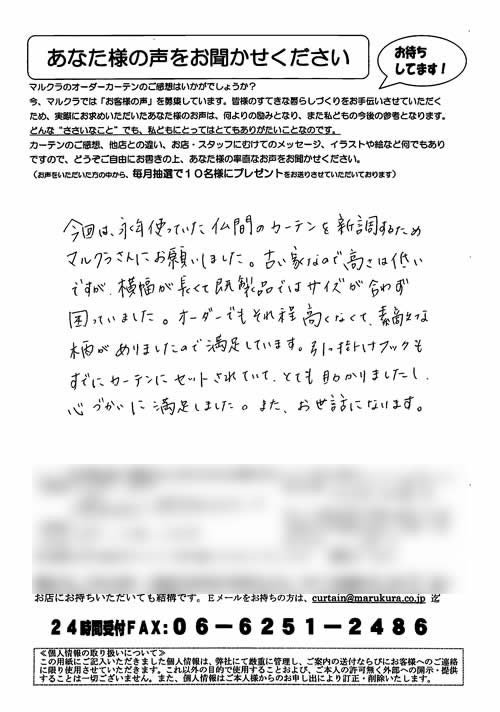 あなた様の声をお聞かせください
お待ち
してます!
マルクラのオーダーカーテンのご感想はいかがでしょうか?
今、マルクラでは「お客様の声」を募集しています。皆様のすてきな暮らしづくりをお手伝いさせていただく
ため、実際にお求めいただいたあなた様のお声は、何よりの励みとなり、また私どもの今後の参考となります。
どんな“ささいなこと”でも、私どもにとってはとてもありがたいことなのです。
カーテンのご感想、他店との違い、お店・スタッフにむけてのメッセージ、イラストや絵など何でもあり
ですので、どうぞご自由にお書きの上、あなた様の率直なお声をお聞かせください。
(お声をいただいた方の中から、毎月抽選で10名様にプレゼントをお送りさせていただいております)
今回は、永年使っていた仏間のカーテンを新調するため
マルクラさんにお願いしました。古い家なので高さは低い
ですが、横幅が長くて既製品ではサイズが合わず
困っていました。オーダーでもそれ程高くなくて、素敵な
柄がありましたので満足しています。引っ掛けフックも
すでにカーテンにセットされていて、とても助かりましたし、
心づかいに満足しました。また、お世話になります。
お店にお持ちいただいても結構です。Eメールをお持ちの方は、curtain@marukura.co.jp 迄
24時間受付FAX:06-6251-2486
≪個人情報の取り扱いについて≫
この用紙にご記入いただきました個人情報は、弊社にて厳重に管理し、ご案内の送付ならびにお客様へのご連絡
に限り使用させていただきます。これ以外の目的で使用することおよび、ご本人の許可無く外部への開示・提供
することは一切ございません。また、個人情報はご本人様からのお申し出により訂正・削除いたします。